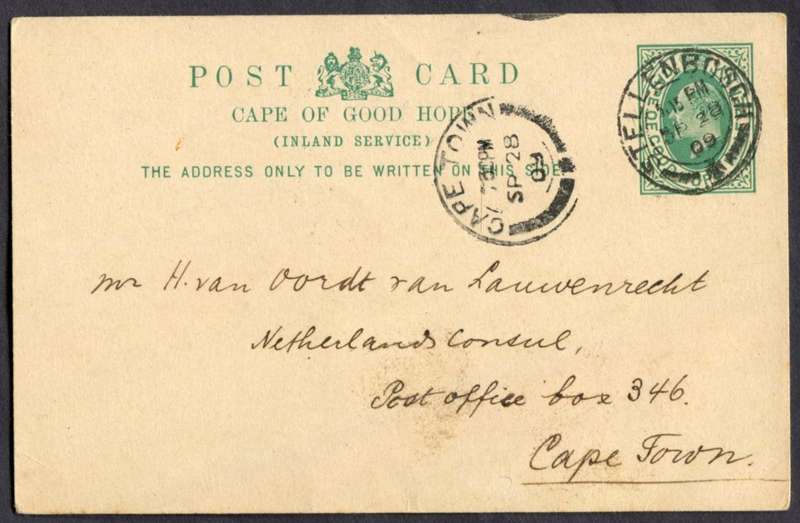 POST CARD
CAPE OF GOOD HOPE
(INLAND SERVICE)
THE ADDRESS ONLY TO BE WRITTEN ON THIS SIDE.
CAPE TOWN
PM
SP 28
09
STELLENBOSCH
PM
SP 28
09
mr H. van Oordt van Lauwenrecht
Netherlands Consul,
Post office box 346.
Cape Town.